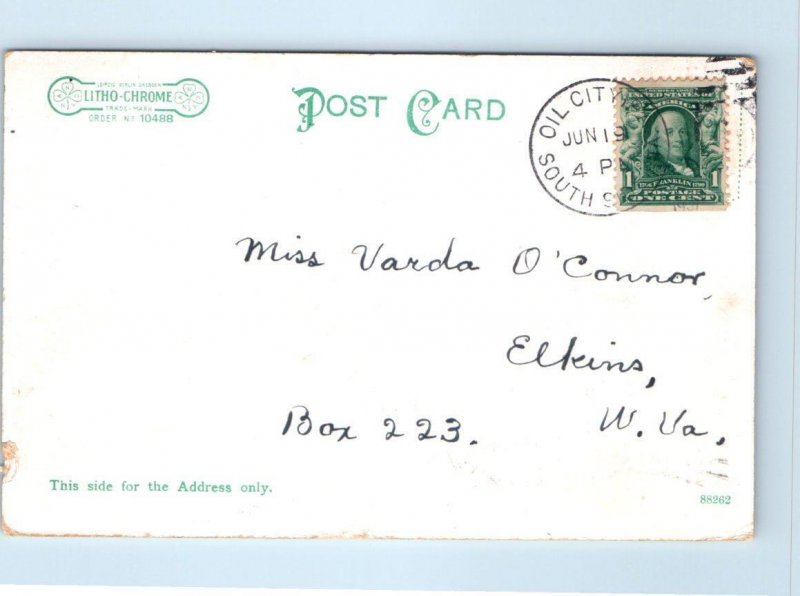 LEIPZIG BERLIN DRESDEN
LITHO-CHROME
TRADE-MARK
ORDER Nº 10488
POST CARD
OIL CITY
JUN 19
4 P
SOUTH S
UNITED STATES OF
AMERICA
FRANKLIN
1 POSTAGE 1
ONE CENT
Miss Varda O'Connor,
Elkins,
Box 223. W. Va,
This side for the Address only.
88262